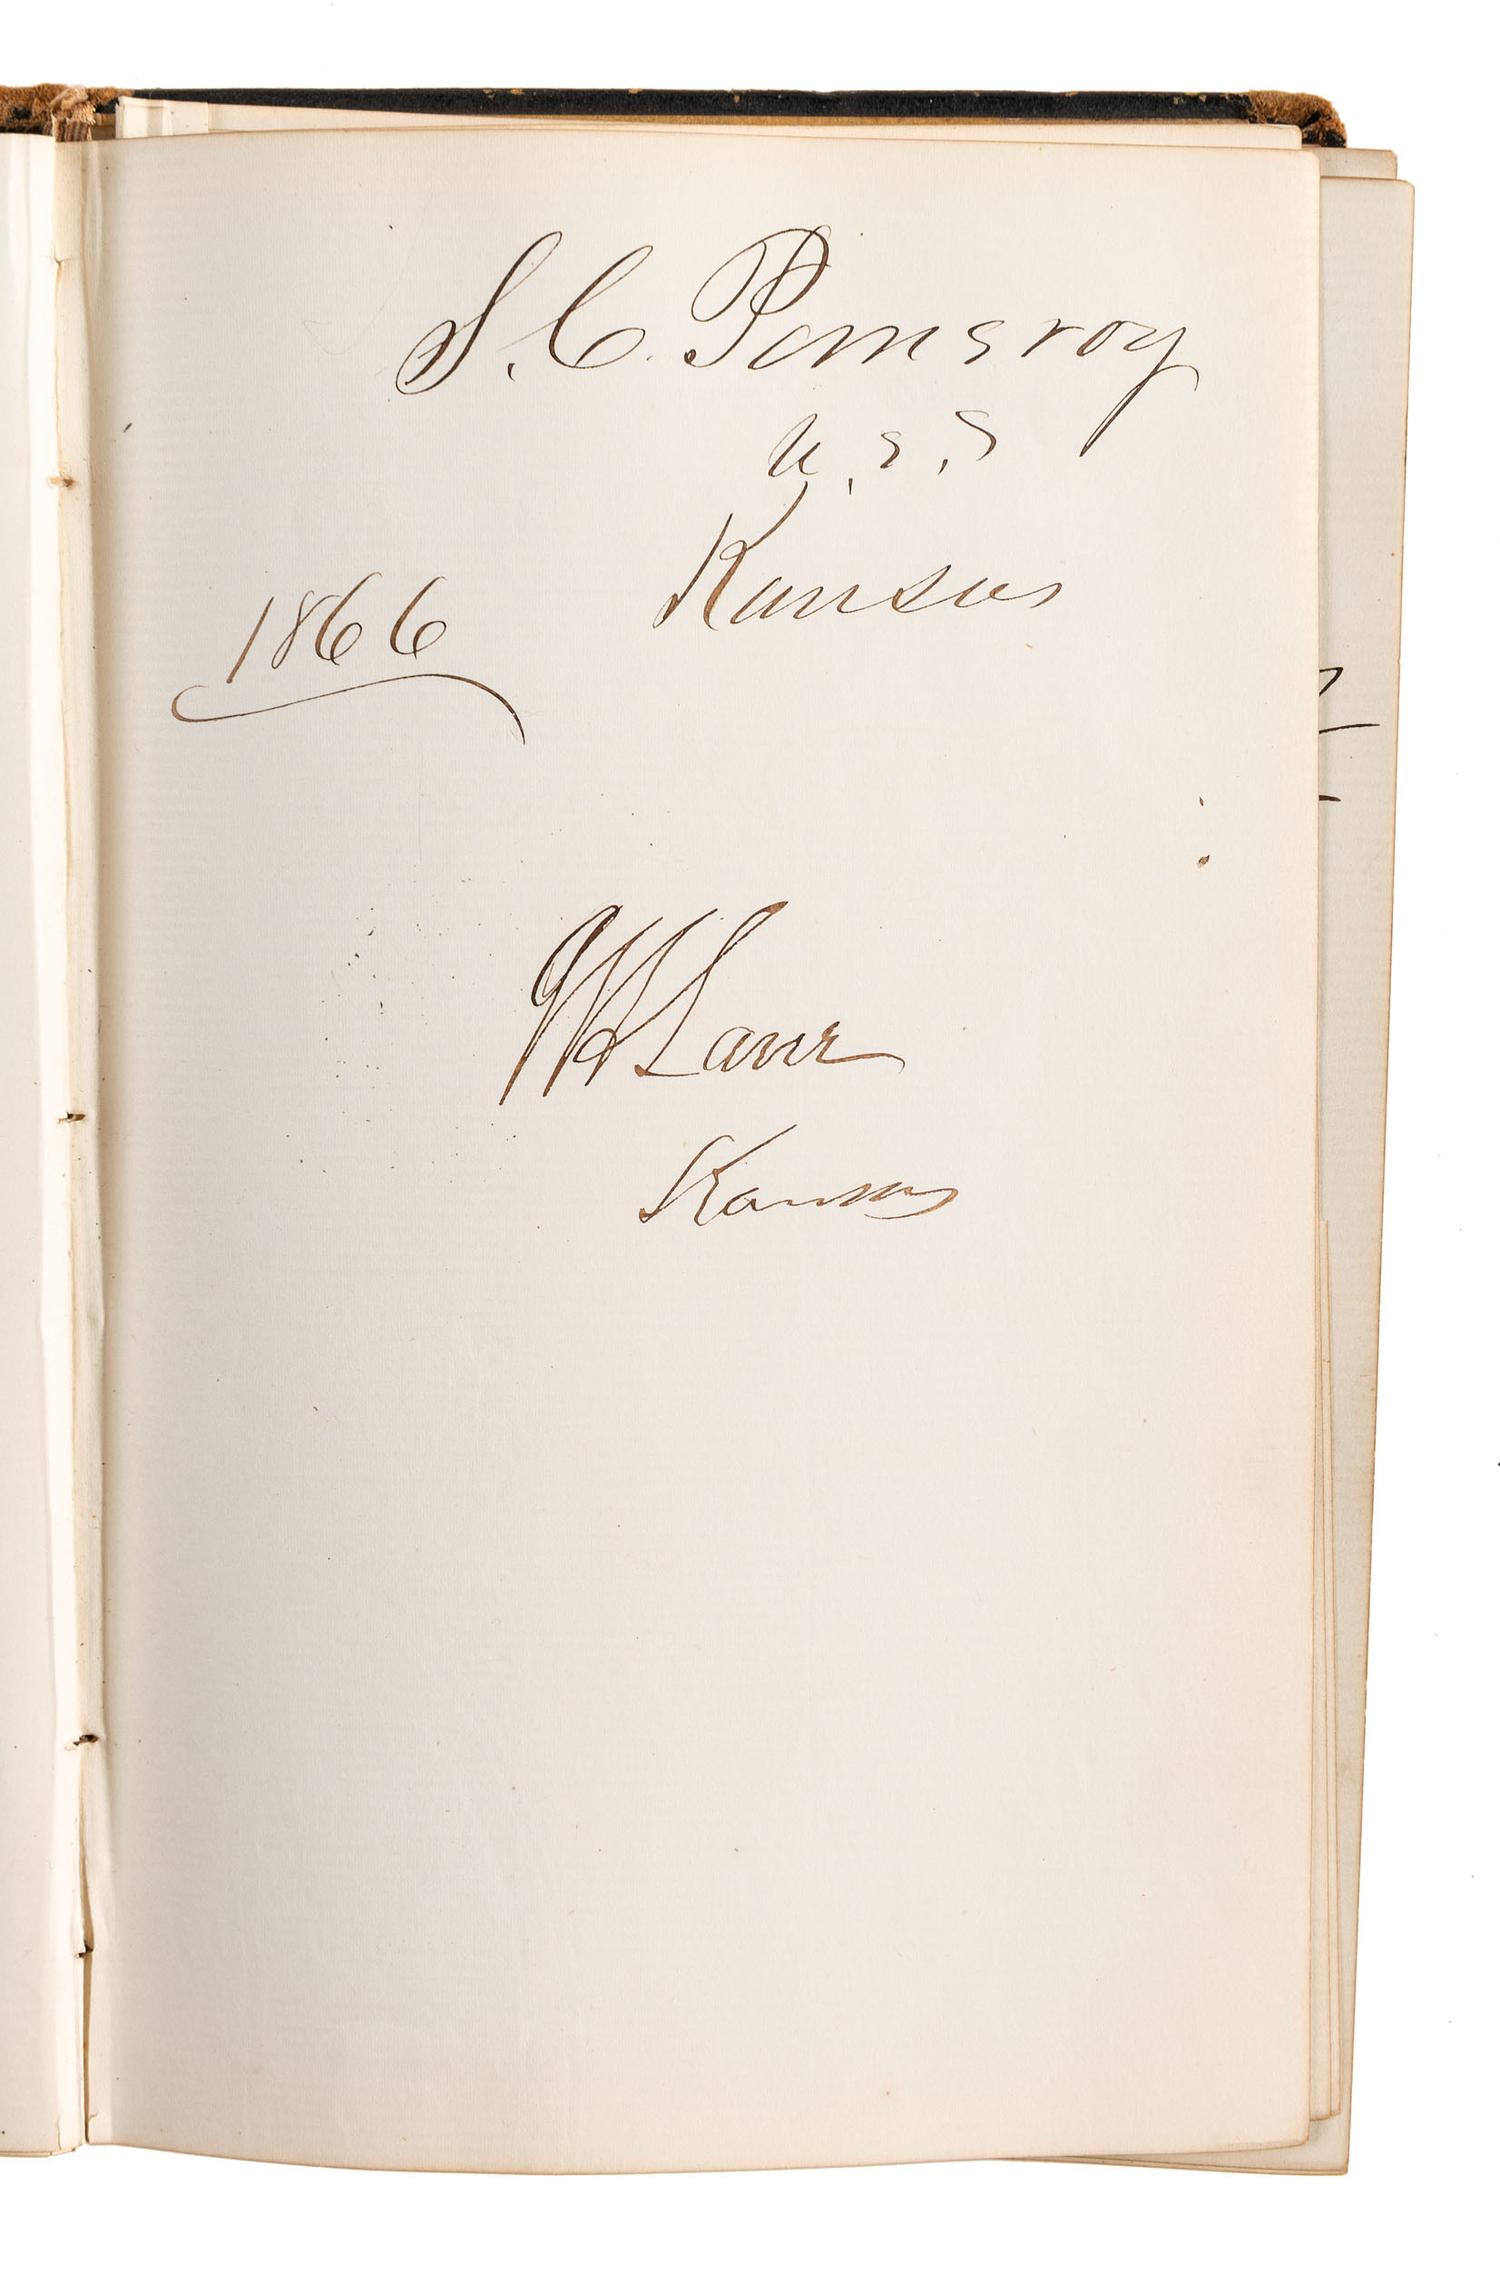 S. C. Pomeroy
U.S.S
Kansas
1866
J H Lane
Kansas